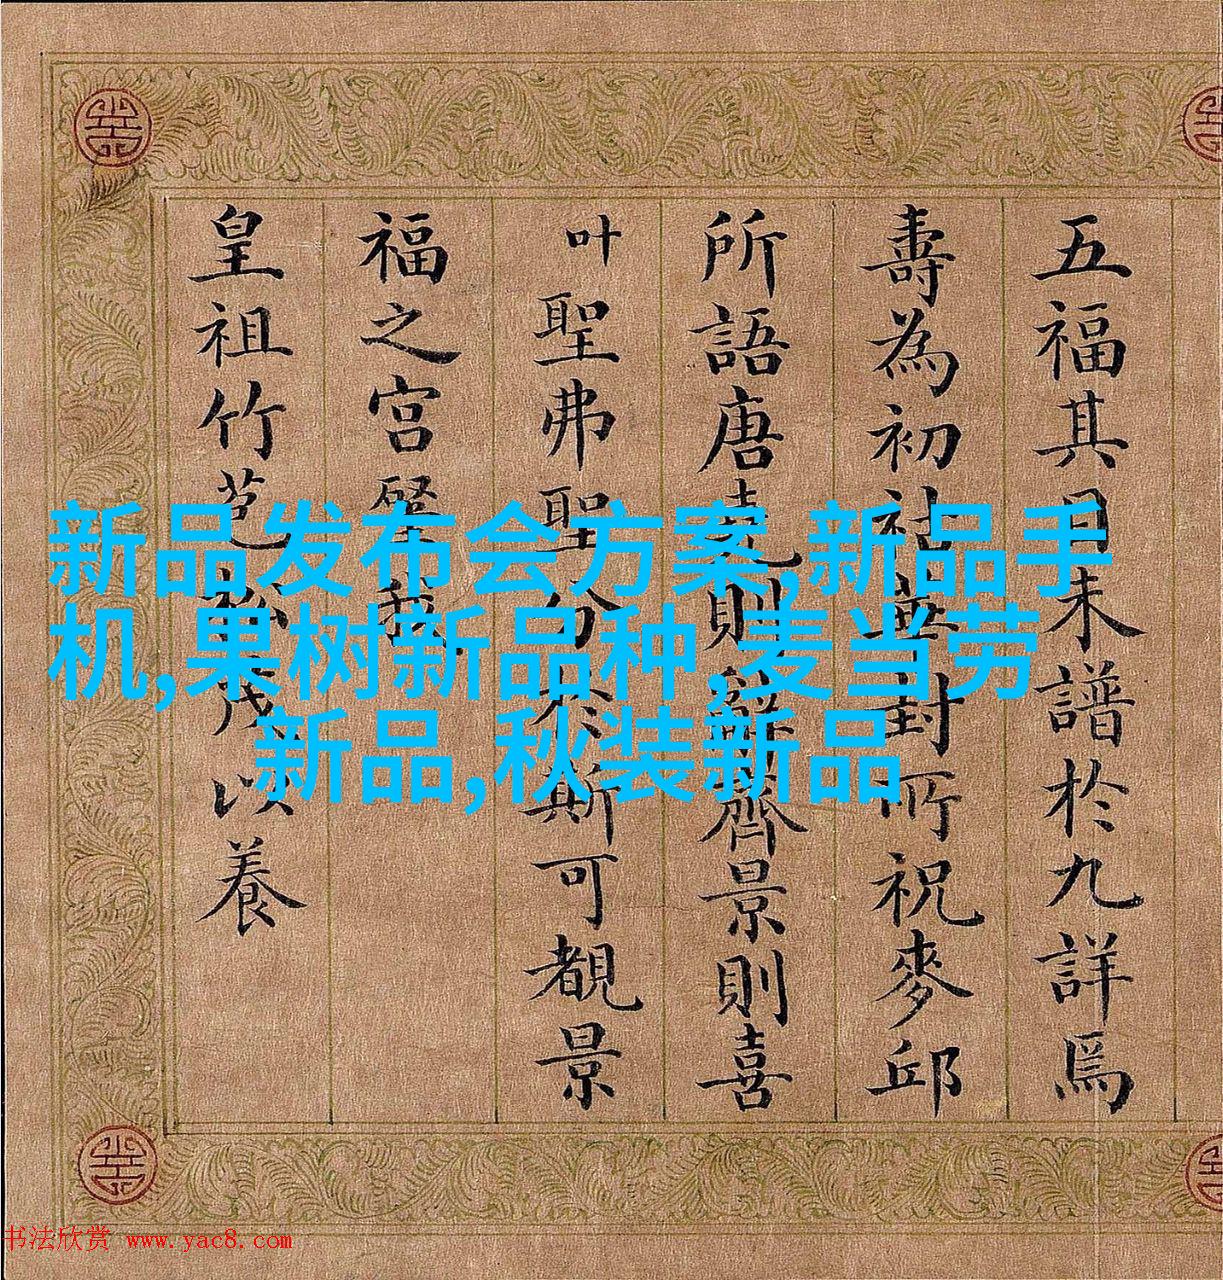 五福其目未譜於九詳焉
壽為初祜華封所祝麥邱
所語唐堯則辭齊景則喜
叶聖弗聖分於斯可覩景
福之宮繄我
皇祖竹苞松茂以養
新品发布会方案,新品手
机,果树新品种,麦当劳
新品,秋装新品
书法欣赏 www.yac8.com